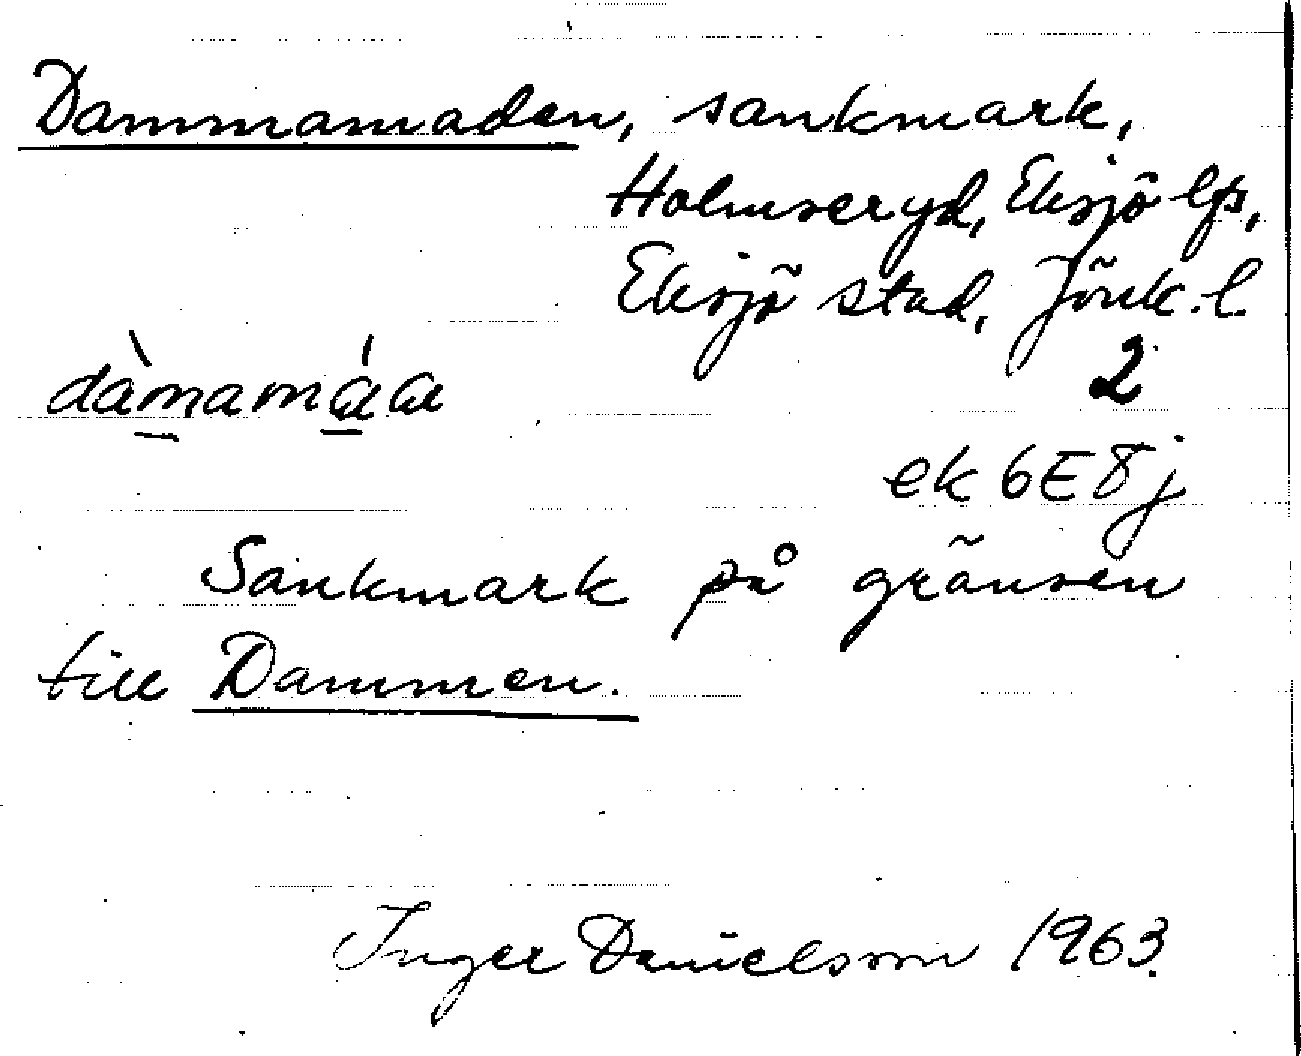 Dammamaden, sankmark,
Holmseryd, Eksjö lfs,
Eksjö stad, Jönk. l.
2
ek 6E8j
Sankmark på gränsen
till Dammen.
Inger Danielsson 1963.